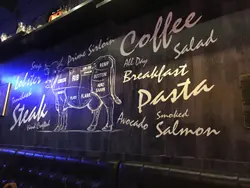 Coffee
Soup
Prime Sirloin
Salad
Lobster
All Day
Breakfast
RIB
Pasta
Steak
Avocado
Smoked
Salmon